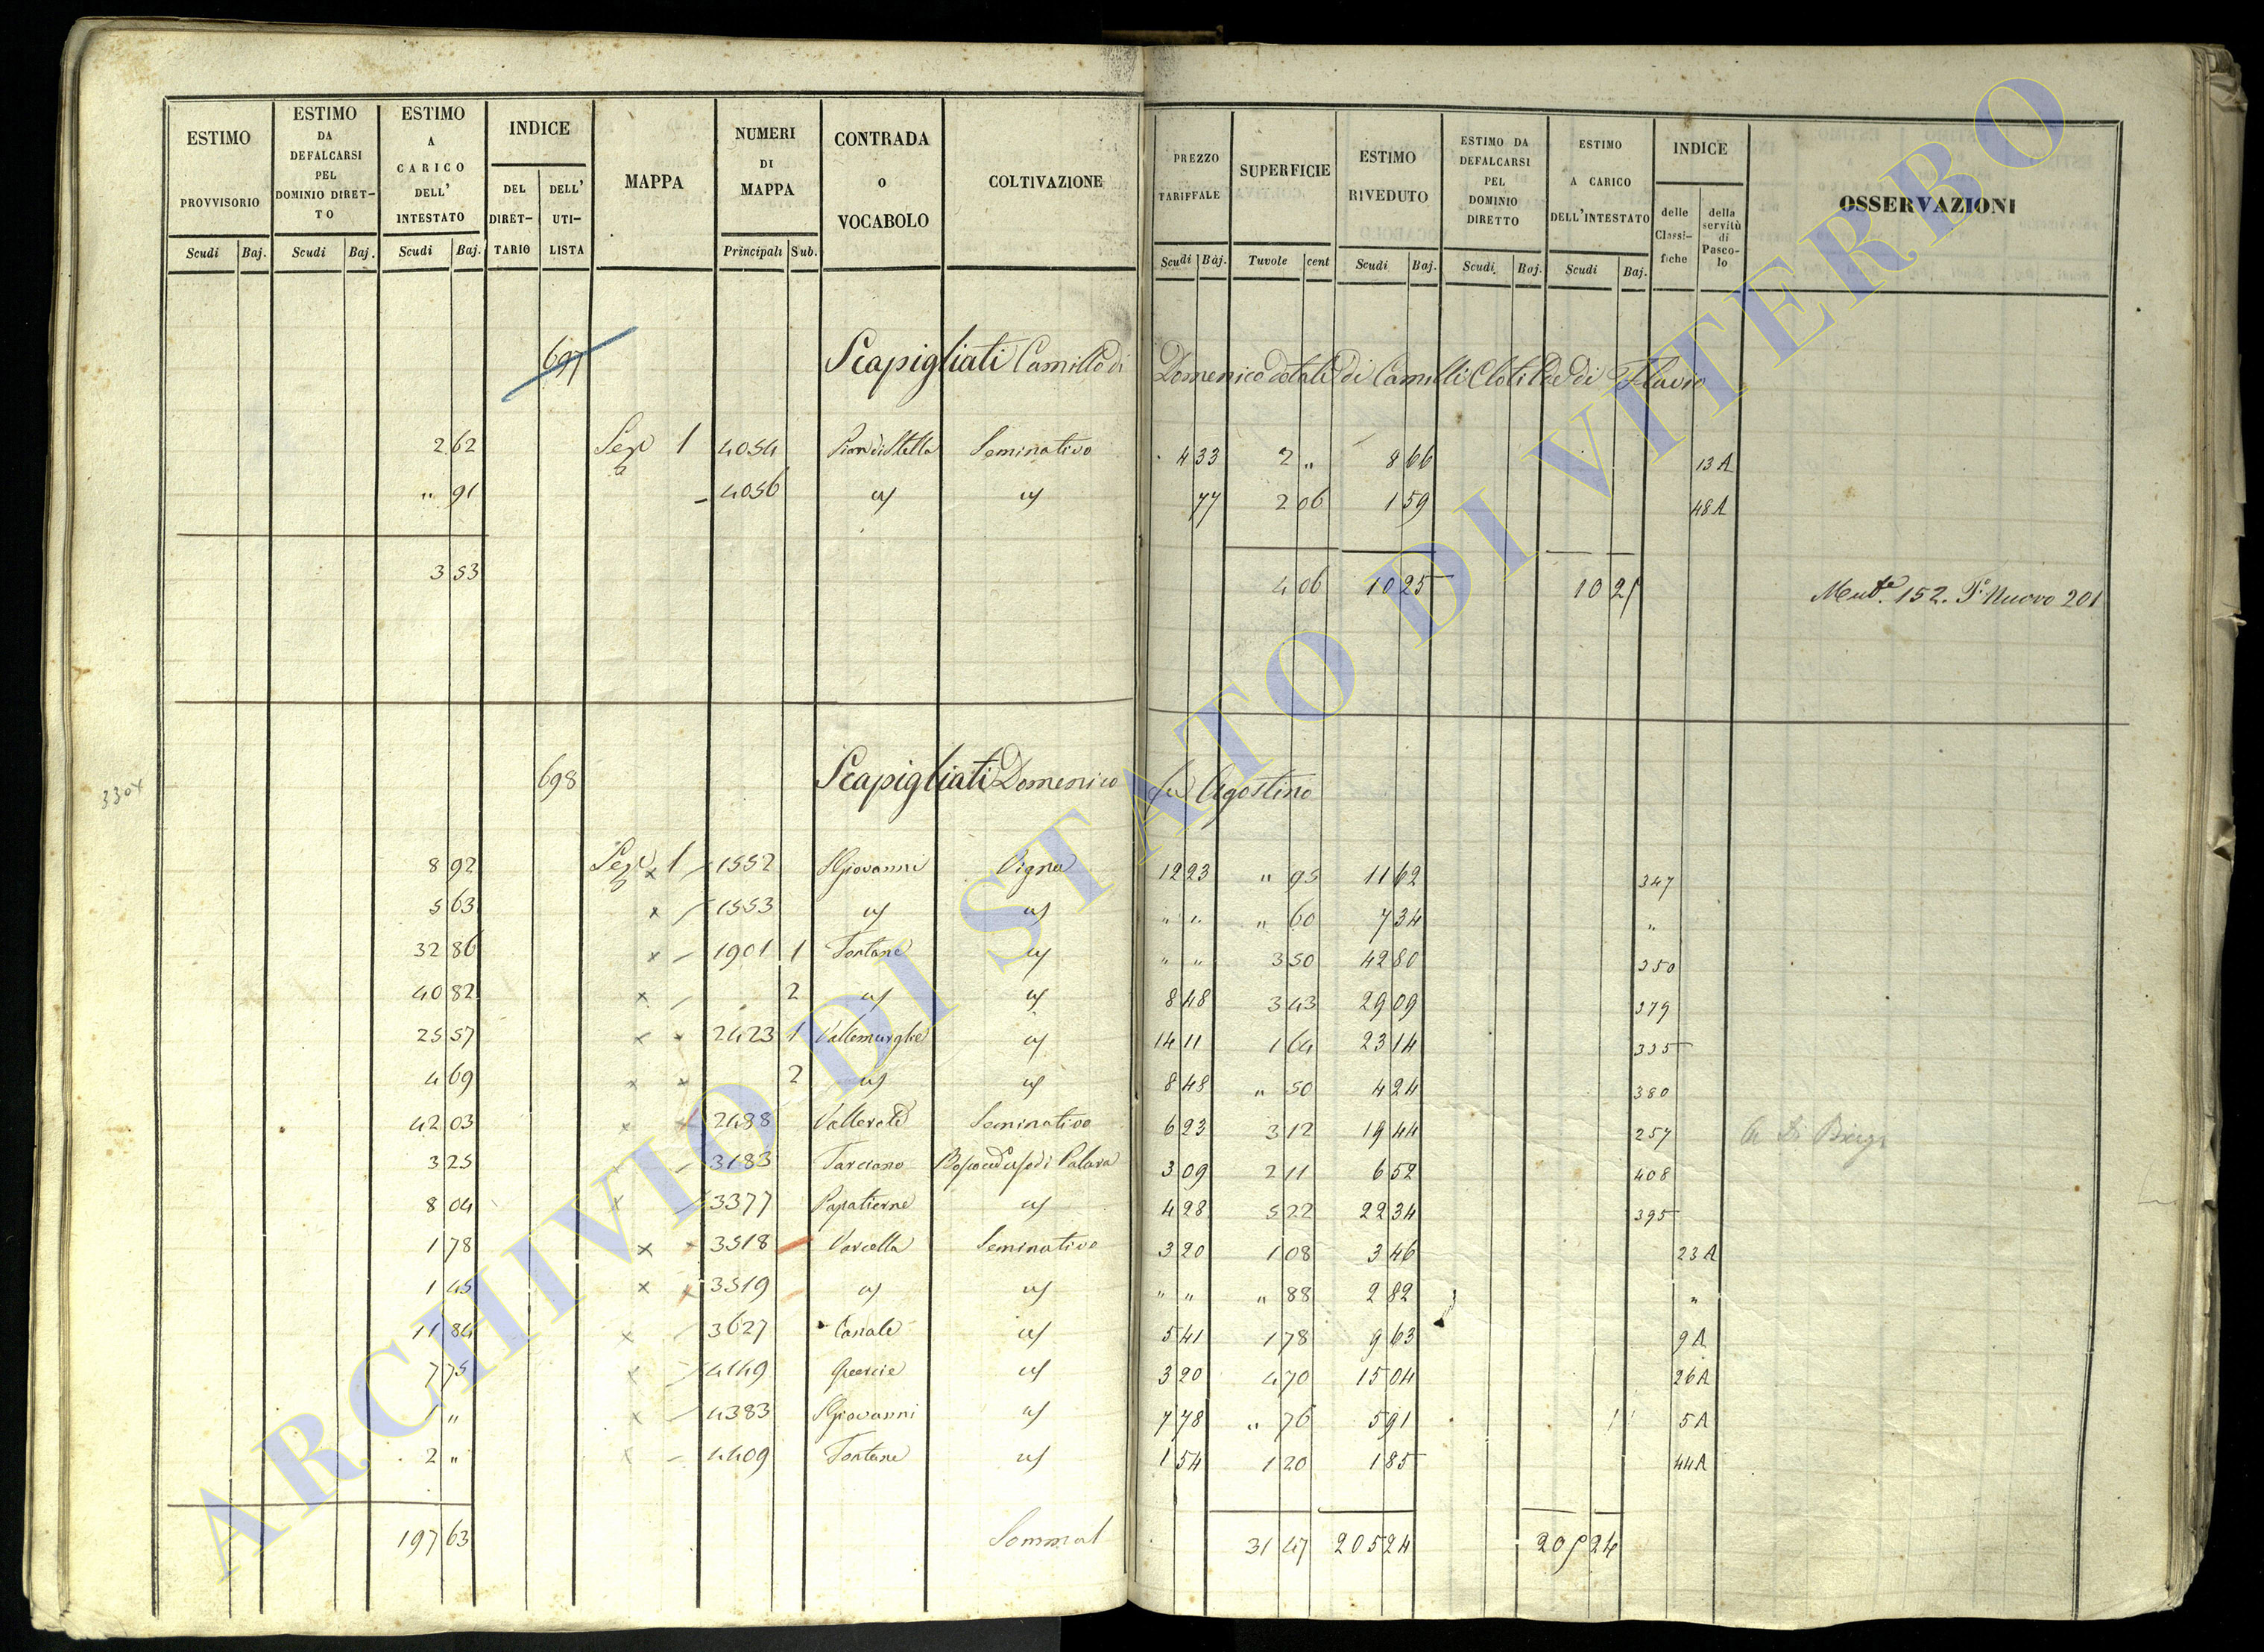 ESTIMO PROVVISORIO Scudi Baj.
ESTIMO DA DEFALCARSI PEL DOMINIO DIRET- TO Scudi Baj.
ESTIMO A CARICO DELL' INTESTATO Scudi Baj.
INDICE DEL DIRET- TARIO DELL' UTI- LISTA
MAPPA
NUMERI DI MAPPA Principali Sub.
CONTRADA O VOCABOLO
COLTIVAZIONE
PREZZO TARIFFALE Scudi Baj.
SUPERFICIE Tavole cent
ESTIMO RIVEDUTO Scudi Baj.
ESTIMO DA DEFALCARSI PEL DOMINIO DIRETTO Scudi Baj.
ESTIMO A CARICO DELL'INTESTATO Scudi Baj.
INDICE delle Classi- fiche della servitù di Pasco- lo
OSSERVAZIONI
697 Scapigliati Camillo di Domenico dotali di Camilli Clotilde di Flavio
2 62 Sez 1 4054 Pian di Stella Seminativo 4 33 2 " 8 66 13 A
" 91 - 4056 " " 77 2 06 1 59 48 A
3 53 4 06 10 25 10 25 152. Nuovo 201
3304
698 Scapigliati Domenico fu Agostino
8 92 Sez x 1 1552 S Giovanni Vigna 12 23 " 95 11 62 347
5 63 x 1553 " " " " " 60 7 34 "
32 86 x - 1901 1 Fontane " " " 3 50 42 80 350
40 82 x - 2 " " 8 48 3 43 29 09 379
25 57 x x 2423 1 " 14 11 1 64 23 14 335
4 69 x x 2 " " 8 48 " 50 4 24 380
42 03 x 2488 Seminativo 6 23 3 12 19 44 257
3 25 3183 Tarciano 3 09 2 11 6 52 408
8 04 x 3377 Papatierne " 4 28 5 22 22 34 395
1 78 x x 3518 Seminativo 3 20 1 08 3 46 23 A
1 45 x x 3519 " " " " " 88 2 82 "
11 84 x - 3627 Canale " 5 41 1 78 9 63 9 A
7 75 x 4149 Quercie " 3 20 4 70 15 04 26 A
1 " x 4383 S Giovanni " 7 78 " 76 5 91 5 A
2 " x - 4409 Fontane " 1 54 1 20 1 85 44 A
197 63 31 47 205 24 205 24
ARCHIVIO DI STATO DI VITERBO